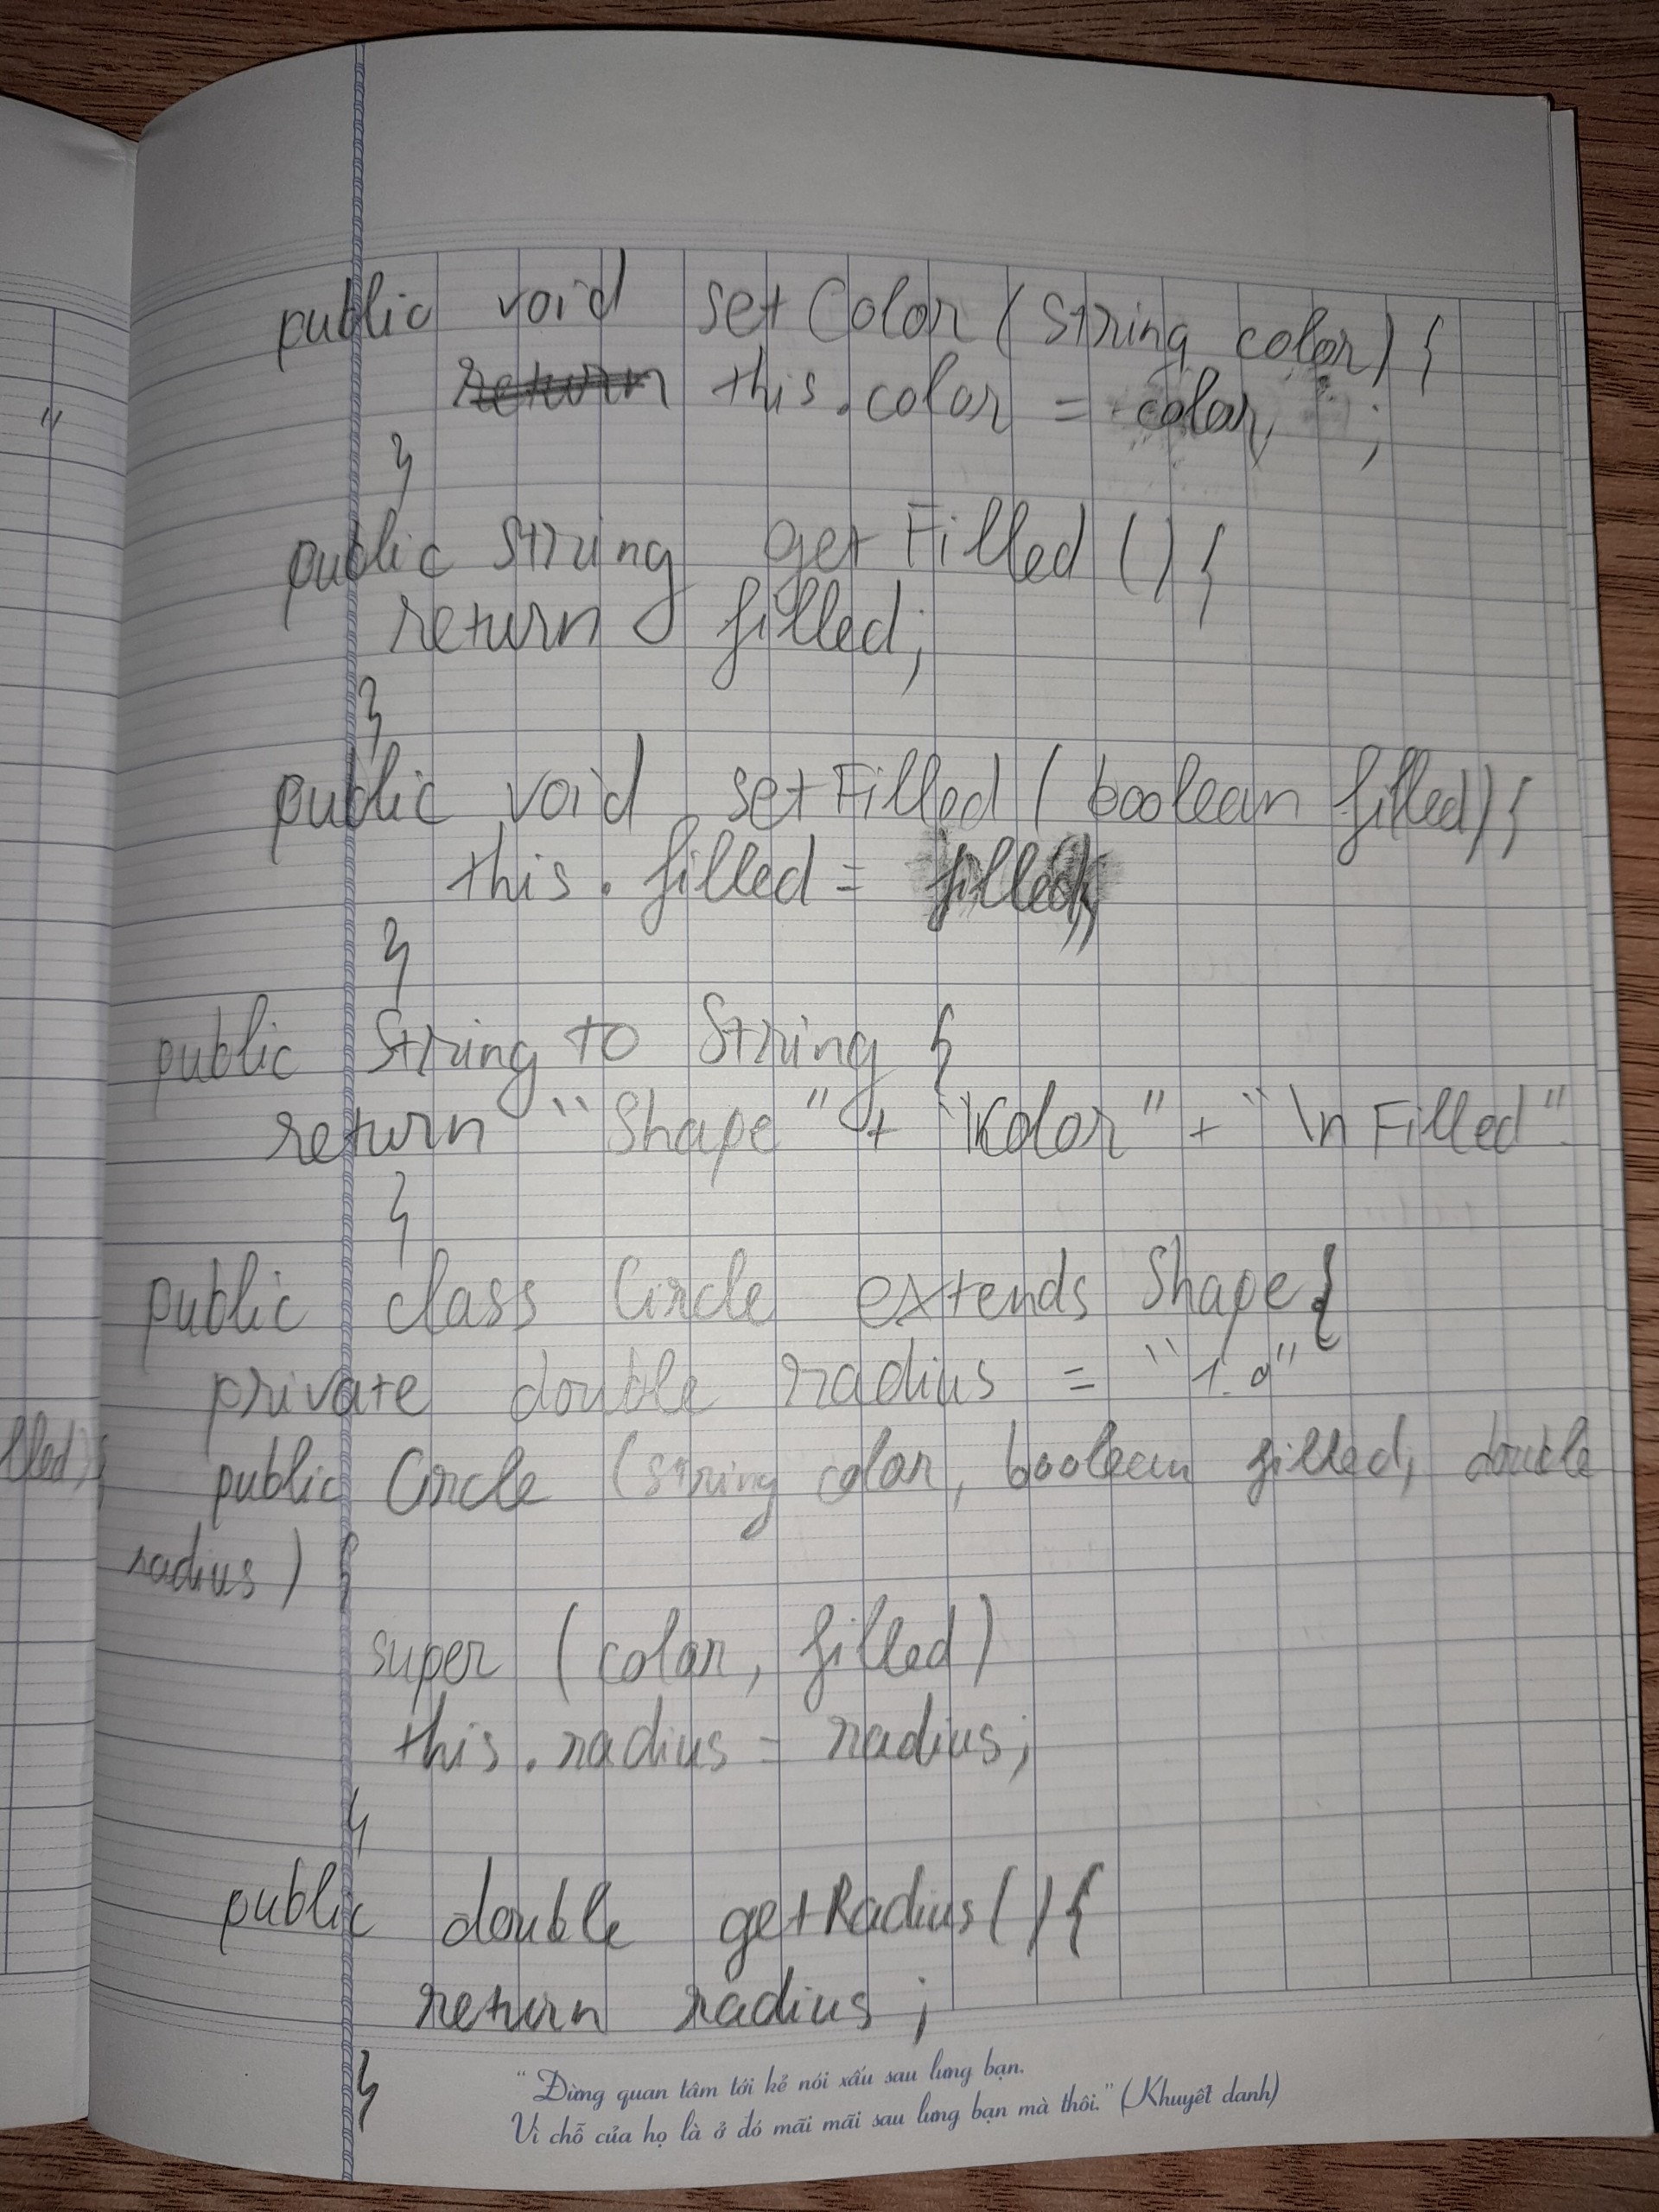 public void setColor(String color) {
this.color = color, ;
}
public String getFilled () {
return filled;
}
public void setFilled (boolean filled) {
this.filled = filled;
}
public String to String {
return "Shape" + "\Kolor" + "\n Filled"
}
public class Circle extends Shape {
private double radius = "1.0"
public Circle (string color, boolean filled, double
radius) {
super (color, filled)
this.radius = radius;
}
public double getRadius() {
return radius ;
}
"Đừng quan tâm tới kẻ nói xấu sau lưng bạn.
Vì chỗ của họ là ở đó mãi mãi sau lưng bạn mà thôi." (Khuyết danh)